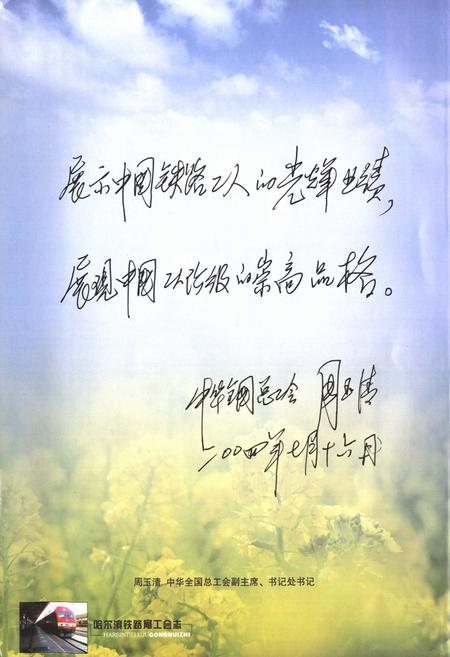 展示中国铁路工人的光辉业绩，
展现中国工人阶级的崇高品格。
中华全国总工会 周玉清
二〇〇四年七月十六日
周玉清 中华全国总工会副主席、书记处书记
哈尔滨铁路局工会志
HARBINTIELUJUGONGHUIZHI